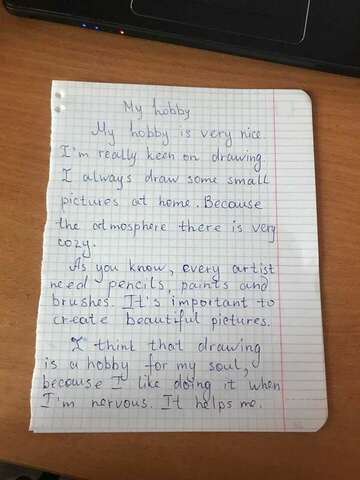 My hobby
My hobby is very nice.
I'm really keen on drawing.
I always draw some small
pictures at home. Because
the atmosphere there is very
cozy.
As you know, every artist
need pencils, paints and
brushes. It's important to
create beautiful pictures.
I think that drawing
is a hobby for my soul,
because I like doing it when
I'm nervous. It helps me.